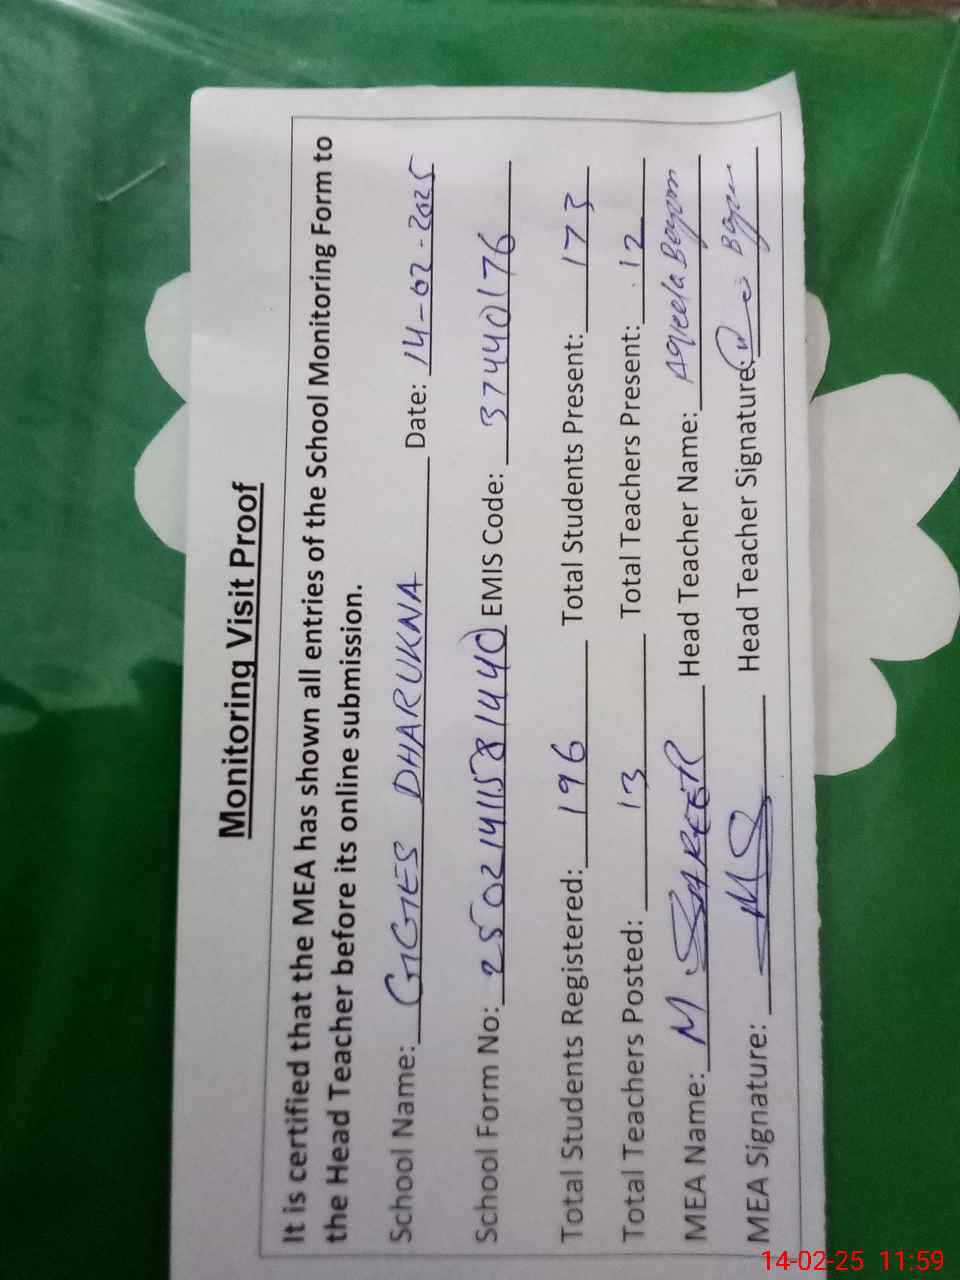 Monitoring Visit Proof
It is certified that the MEA has shown all entries of the School Monitoring Form to
the Head Teacher before its online submission.
School Name: GGES DHARUKNA Date: 14-02-2025
School Form No: 25021411581440 EMIS Code: 37440176
Total Students Registered: 196 Total Students Present: 173
Total Teachers Posted: 13 Total Teachers Present: 12
MEA Name: M Head Teacher Name: Aqeela Begum
MEA Signature: MS Head Teacher Signature:
14-02-25 11:59